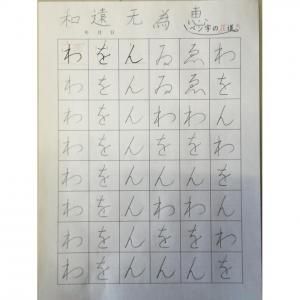 和 遠 无 為 恵
年 月 日
ペン字の花道
わ を ん ゐ ゑ わ
わ を ん ゐ ゑ を
わ を ん ゐ ゑ ん
わ を ん ん ん を
わ を ん ん ん を
わ を ん わ わ ん
わ を ん を を わ
わ を ん ん ん を